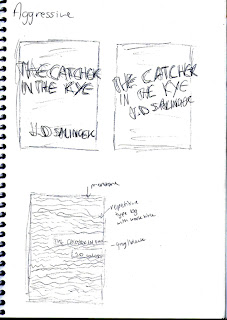 Aggressive
THE CATCHER
IN THE RYE
JD SALINGER
THE CATCHER
IN THE RYE
JD SALINGER
repetitive
type bg
with
THE CATCHER IN THE